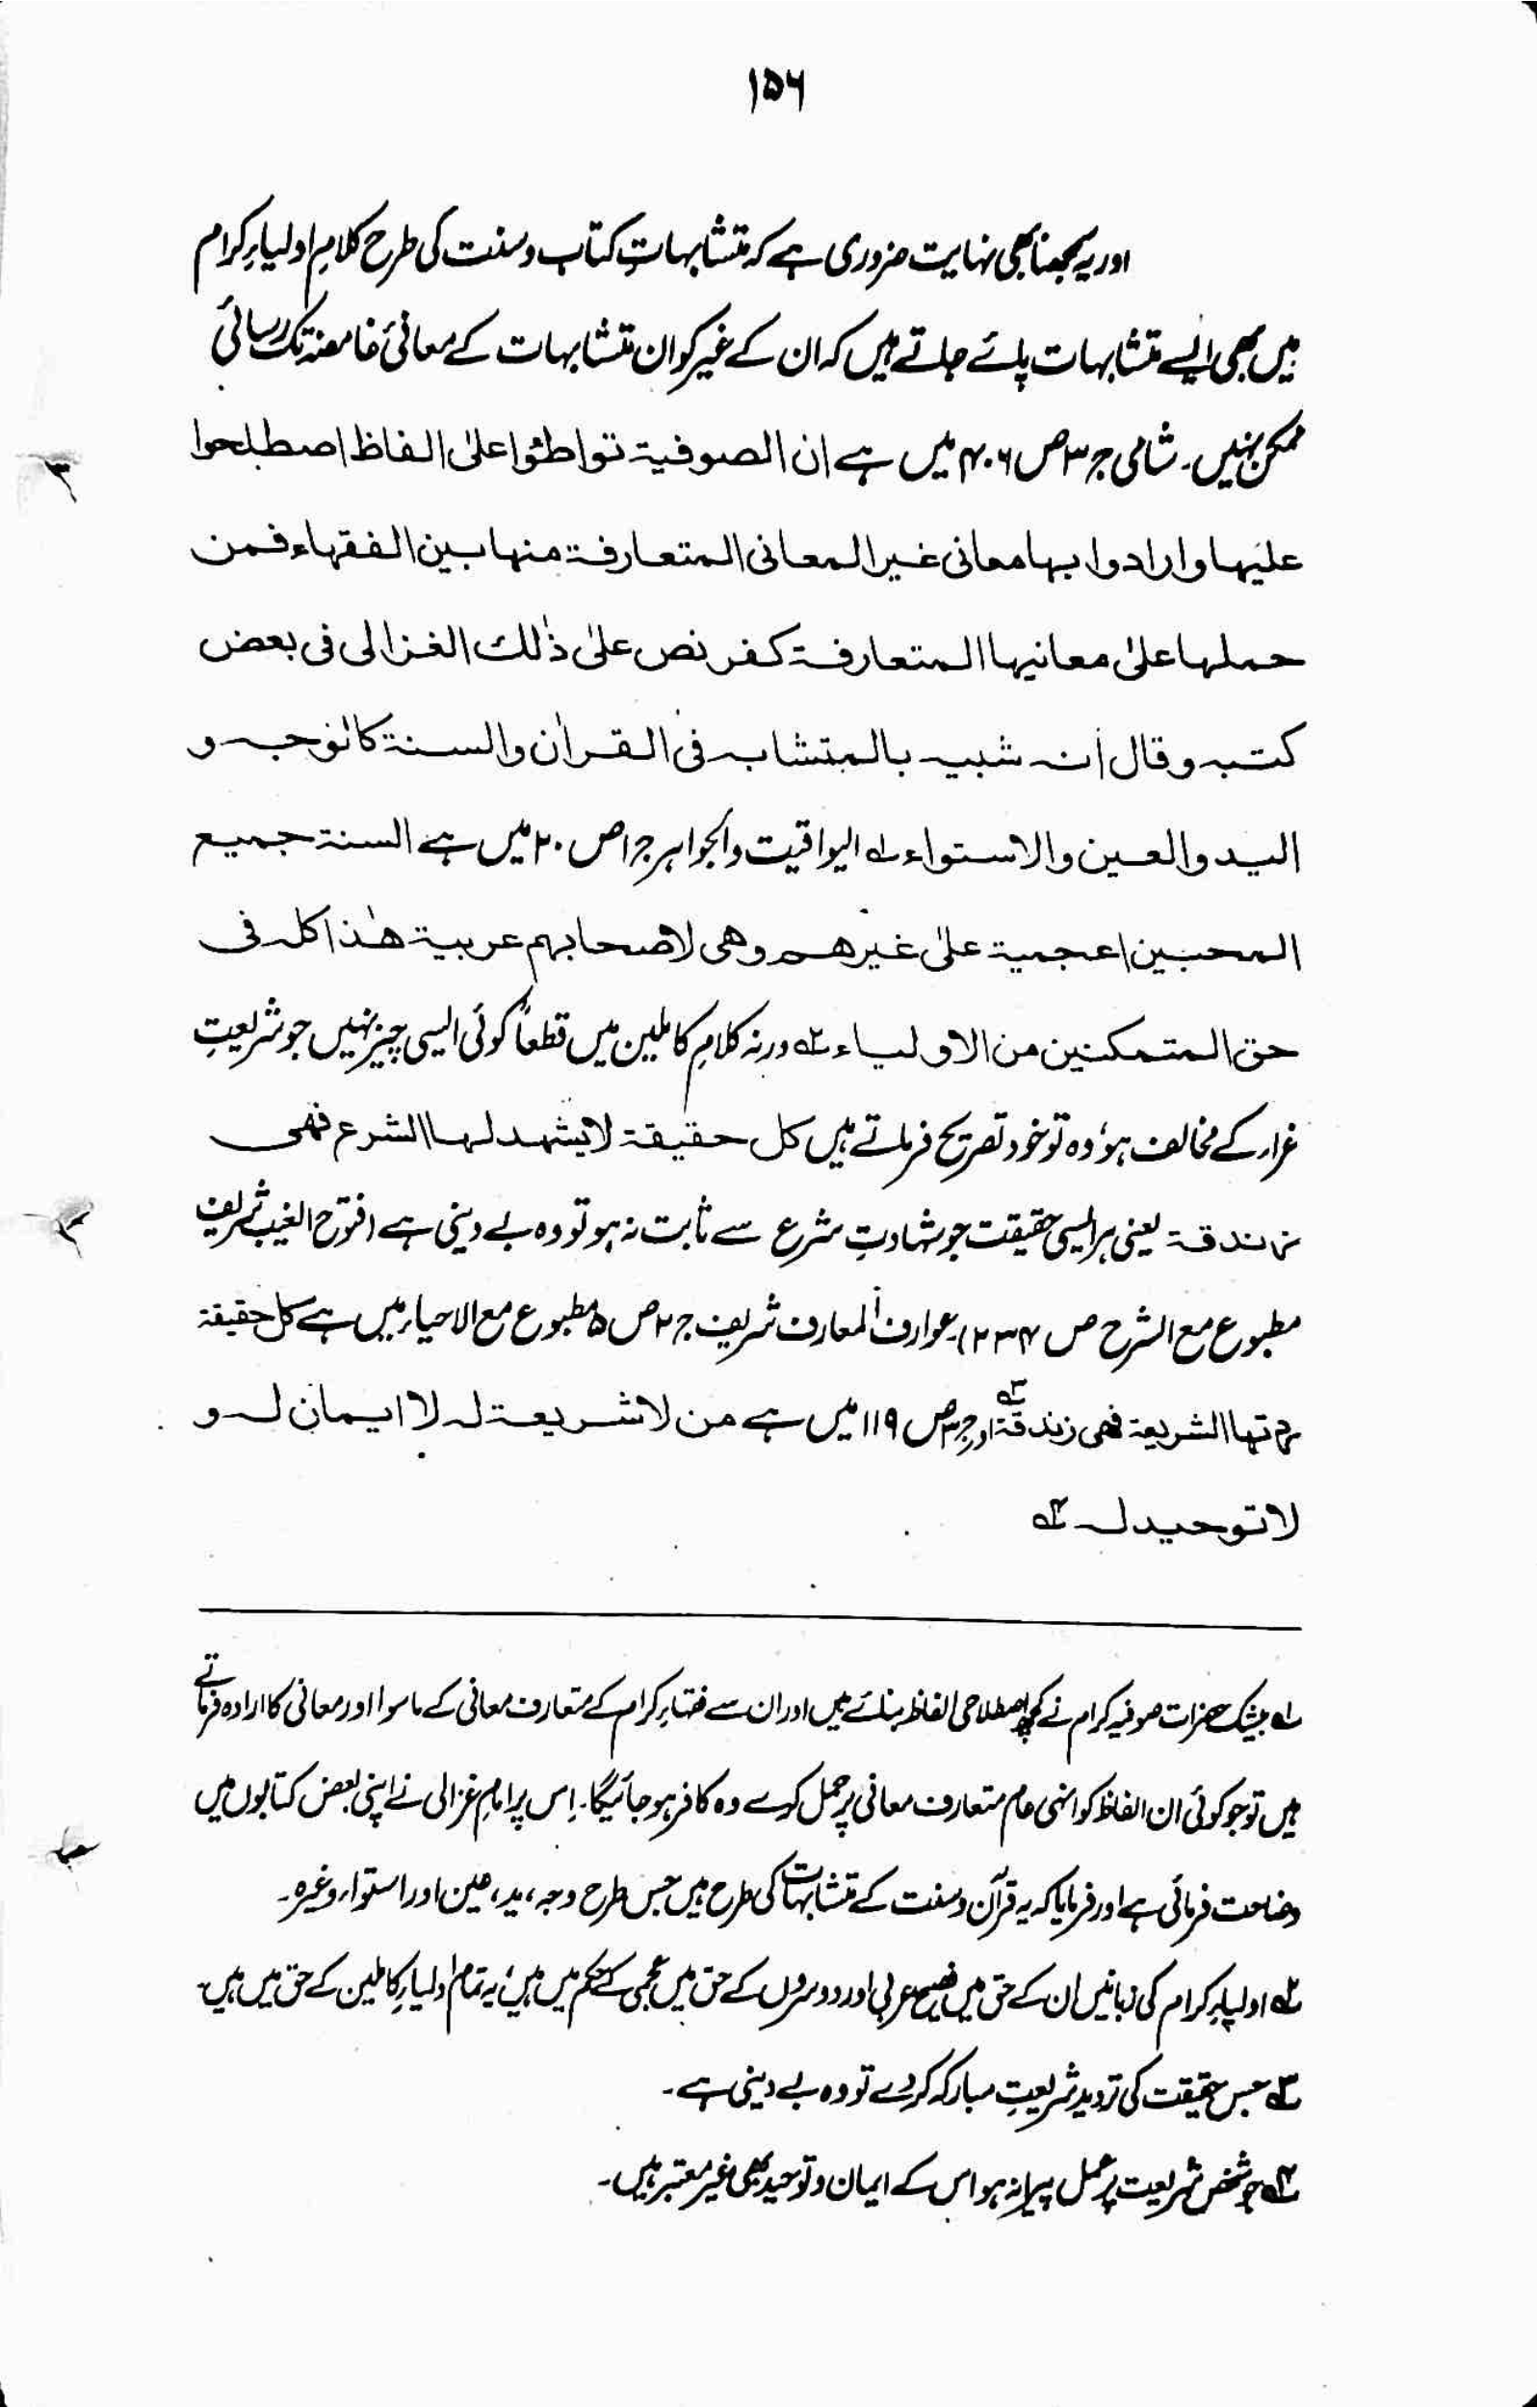 ۱۵۶
اور یہ سمجھنا بھی نہایت ضروری ہے کہ متشابہاتِ کتاب و سنت کی طرح کلامِ اولیاءِ کرام
میں بھی ایسے متشابہات پائے جاتے ہیں کہ ان کے غیر کو ان متشابہات کے معانیٔ غامضہ تک رسائی
ممکن نہیں۔ شامی ج ۳ ص ۴۰۶ میں ہے ان الصوفیۃ تواطئوا علیٰ الفاظ اصطلحوا
علیہا وارادوا بہا معانی غیر المعانی المتعارفۃ منہا بین الفقہاء فمن
حملہا علیٰ معانیہا المتعارفۃ کفر نص علیٰ ذٰلک الغزالی فی بعض
کتبہ وقال انہ شبیہ بالمتشابہ فی القراٰن والسنۃ کالوجہ و
الید والعین والاستواء ؎۱ الیواقیت والجواہر ج ۱ ص ۲۰ میں ہے السنۃ جمیع
المحبین اعجمیۃ علیٰ غیرھم وھی لاصحابہم عربیۃ ھٰذا کلہ فی
حق المتمکنین من الاولیاء ؎۲ ورنہ کلامِ کاملین میں قطعاً کوئی ایسی چیز نہیں جو شریعتِ
غراء کے مخالف ہو، وہ تو خود تصریح فرماتے ہیں کل حقیقۃ لا یشہد لہا الشرع فھی
زندقۃ یعنی ہر ایسی حقیقت جو شہادتِ شرع سے ثابت نہ ہو تو وہ بے دینی ہے (فتوح الغیب شریف
مطبوع مع الشرح ص ۲۳۴)۔ عوارف المعارف شریف ج ۲ ص ۵ مطبوع مع الاحیاء میں ہے کل حقیقۃ
ردتہا الشریعۃ فھی زندقۃ ؎۳ اور ج ۳ ص ۱۱۹ میں ہے من لا شریعۃ لہ لا ایمان لہ و
لا توحید لہ ؎۴
؎۱ بیشک حضرات صوفیہ کرام نے کچھ اصطلاحی الفاظ بنائے ہیں اور ان سے فقہاءِ کرام کے متعارف معانی کے ماسوا اور معانی کا ارادہ فرماتے
ہیں تو جو کوئی ان الفاظ کو انہی عام متعارف معانی پر حمل کرے وہ کافر ہو جائیگا۔ اِس پر امام غزالی نے اپنی بعض کتابوں میں
وضاحت فرمائی ہے اور فرمایا کہ یہ قرآن و سنت کے متشابہات کی طرح ہیں جس طرح وجہ، ید، عین اور استواء وغیرہ۔
؎۲ اولیاءِ کرام کی زبانیں ان کے حق میں فصیح عربی اور دوسروں کے حق میں عجمی کے حکم میں ہیں، یہ تمام اولیاءِ کاملین کے حق میں ہیں۔
؎۳ جس حقیقت کی تردید شریعتِ مبارکہ کر دے تو وہ بے دینی ہے۔
؎۴ جو شخص شریعت پر عمل پیرا نہ ہو اس کے ایمان و توحید بھی غیر معتبر ہیں۔